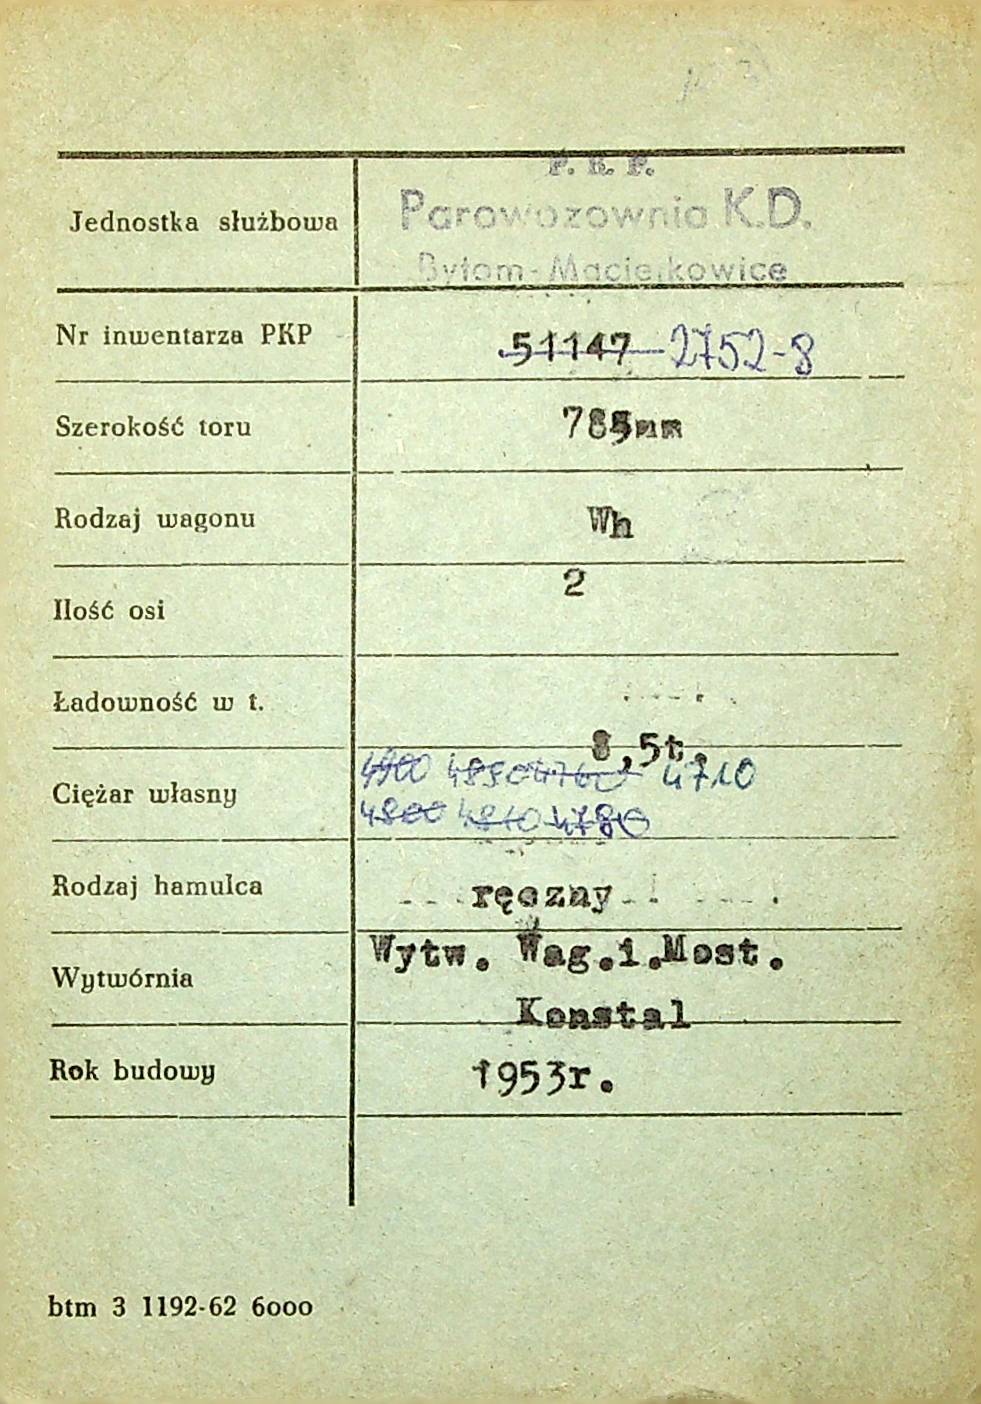 P. K. P.
Jednostka służbowa Parowozownia K.D.
Bytom-Maciejkowice
Nr inwentarza PKP 51147 2752-8
Szerokość toru 785mm
Rodzaj wagonu Wh
Ilość osi 2
Ładowność w t. 8,5t.
4900 4850 4760 4710
Ciężar własny 4800 4810 4780
Rodzaj hamulca ręczny
Wytwórnia Wytw. Wag.i.Most.
Konstal
Rok budowy 1953r.
btm 3 1192-62 6000